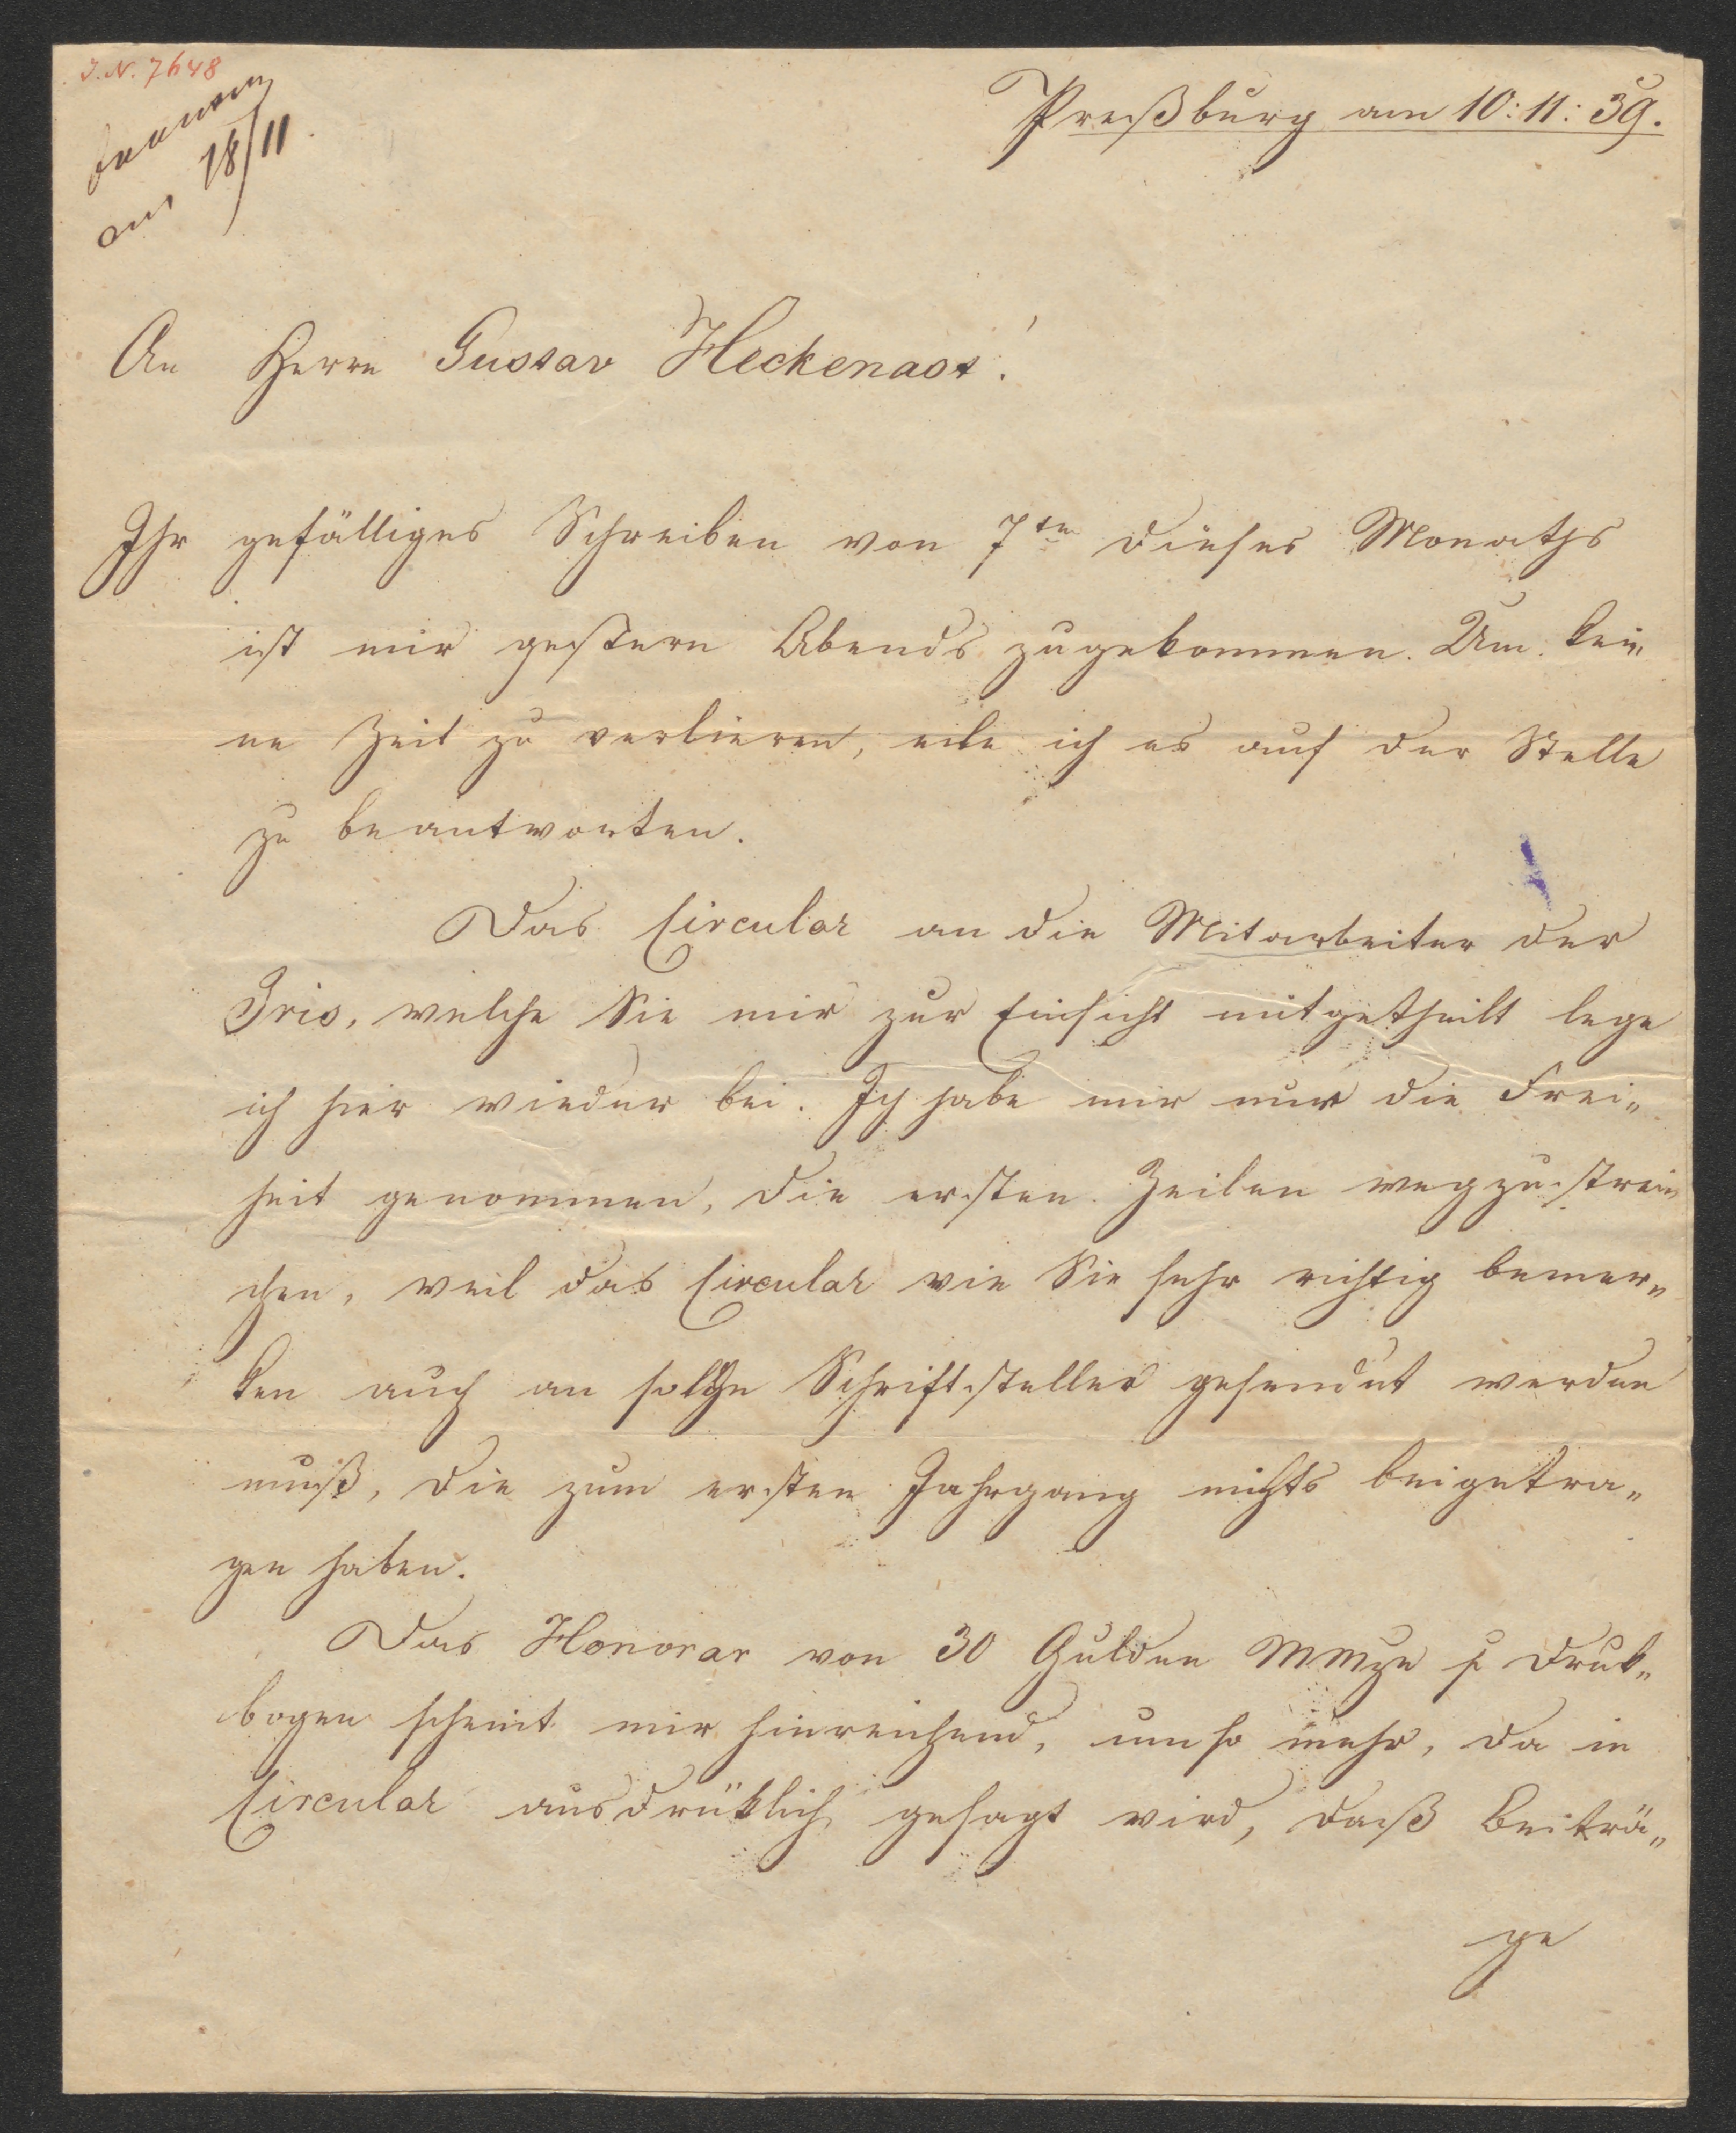 I.N. 7648
Preßburg am 10: 11: 39.
18/11
An Herrn Gustav Heckenast!
Ihr gefälliges Schreiben von 7ten dieses Monaths
ist mir gestern Abends zugekommen. Um kei„
ne Zeit zu verlieren, eile ich es auf der Stelle
zu beantworten.
Das Circular an die Mitarbeiter der
Iris, welche Sie mir zur Einsicht mitgetheilt lege
ich hier wieder bei. Ich habe mir nur die Frei„
heit genommen, die ersten Zeilen wegzustrei„
chen, weil das Circular wie Sie sehr richtig bemer„
ken auch an solche Schriftsteller gesendet werden
muß, die zum ersten Jahrgang nichts beigetra„
gen haben.
Das Honorar von 30 Gulden Mmze pr Druk„
bogen scheint mir hinreichend, um so mehr, da in
Circular ausdrüklich gesagt wird, daß Beiträ„
ge